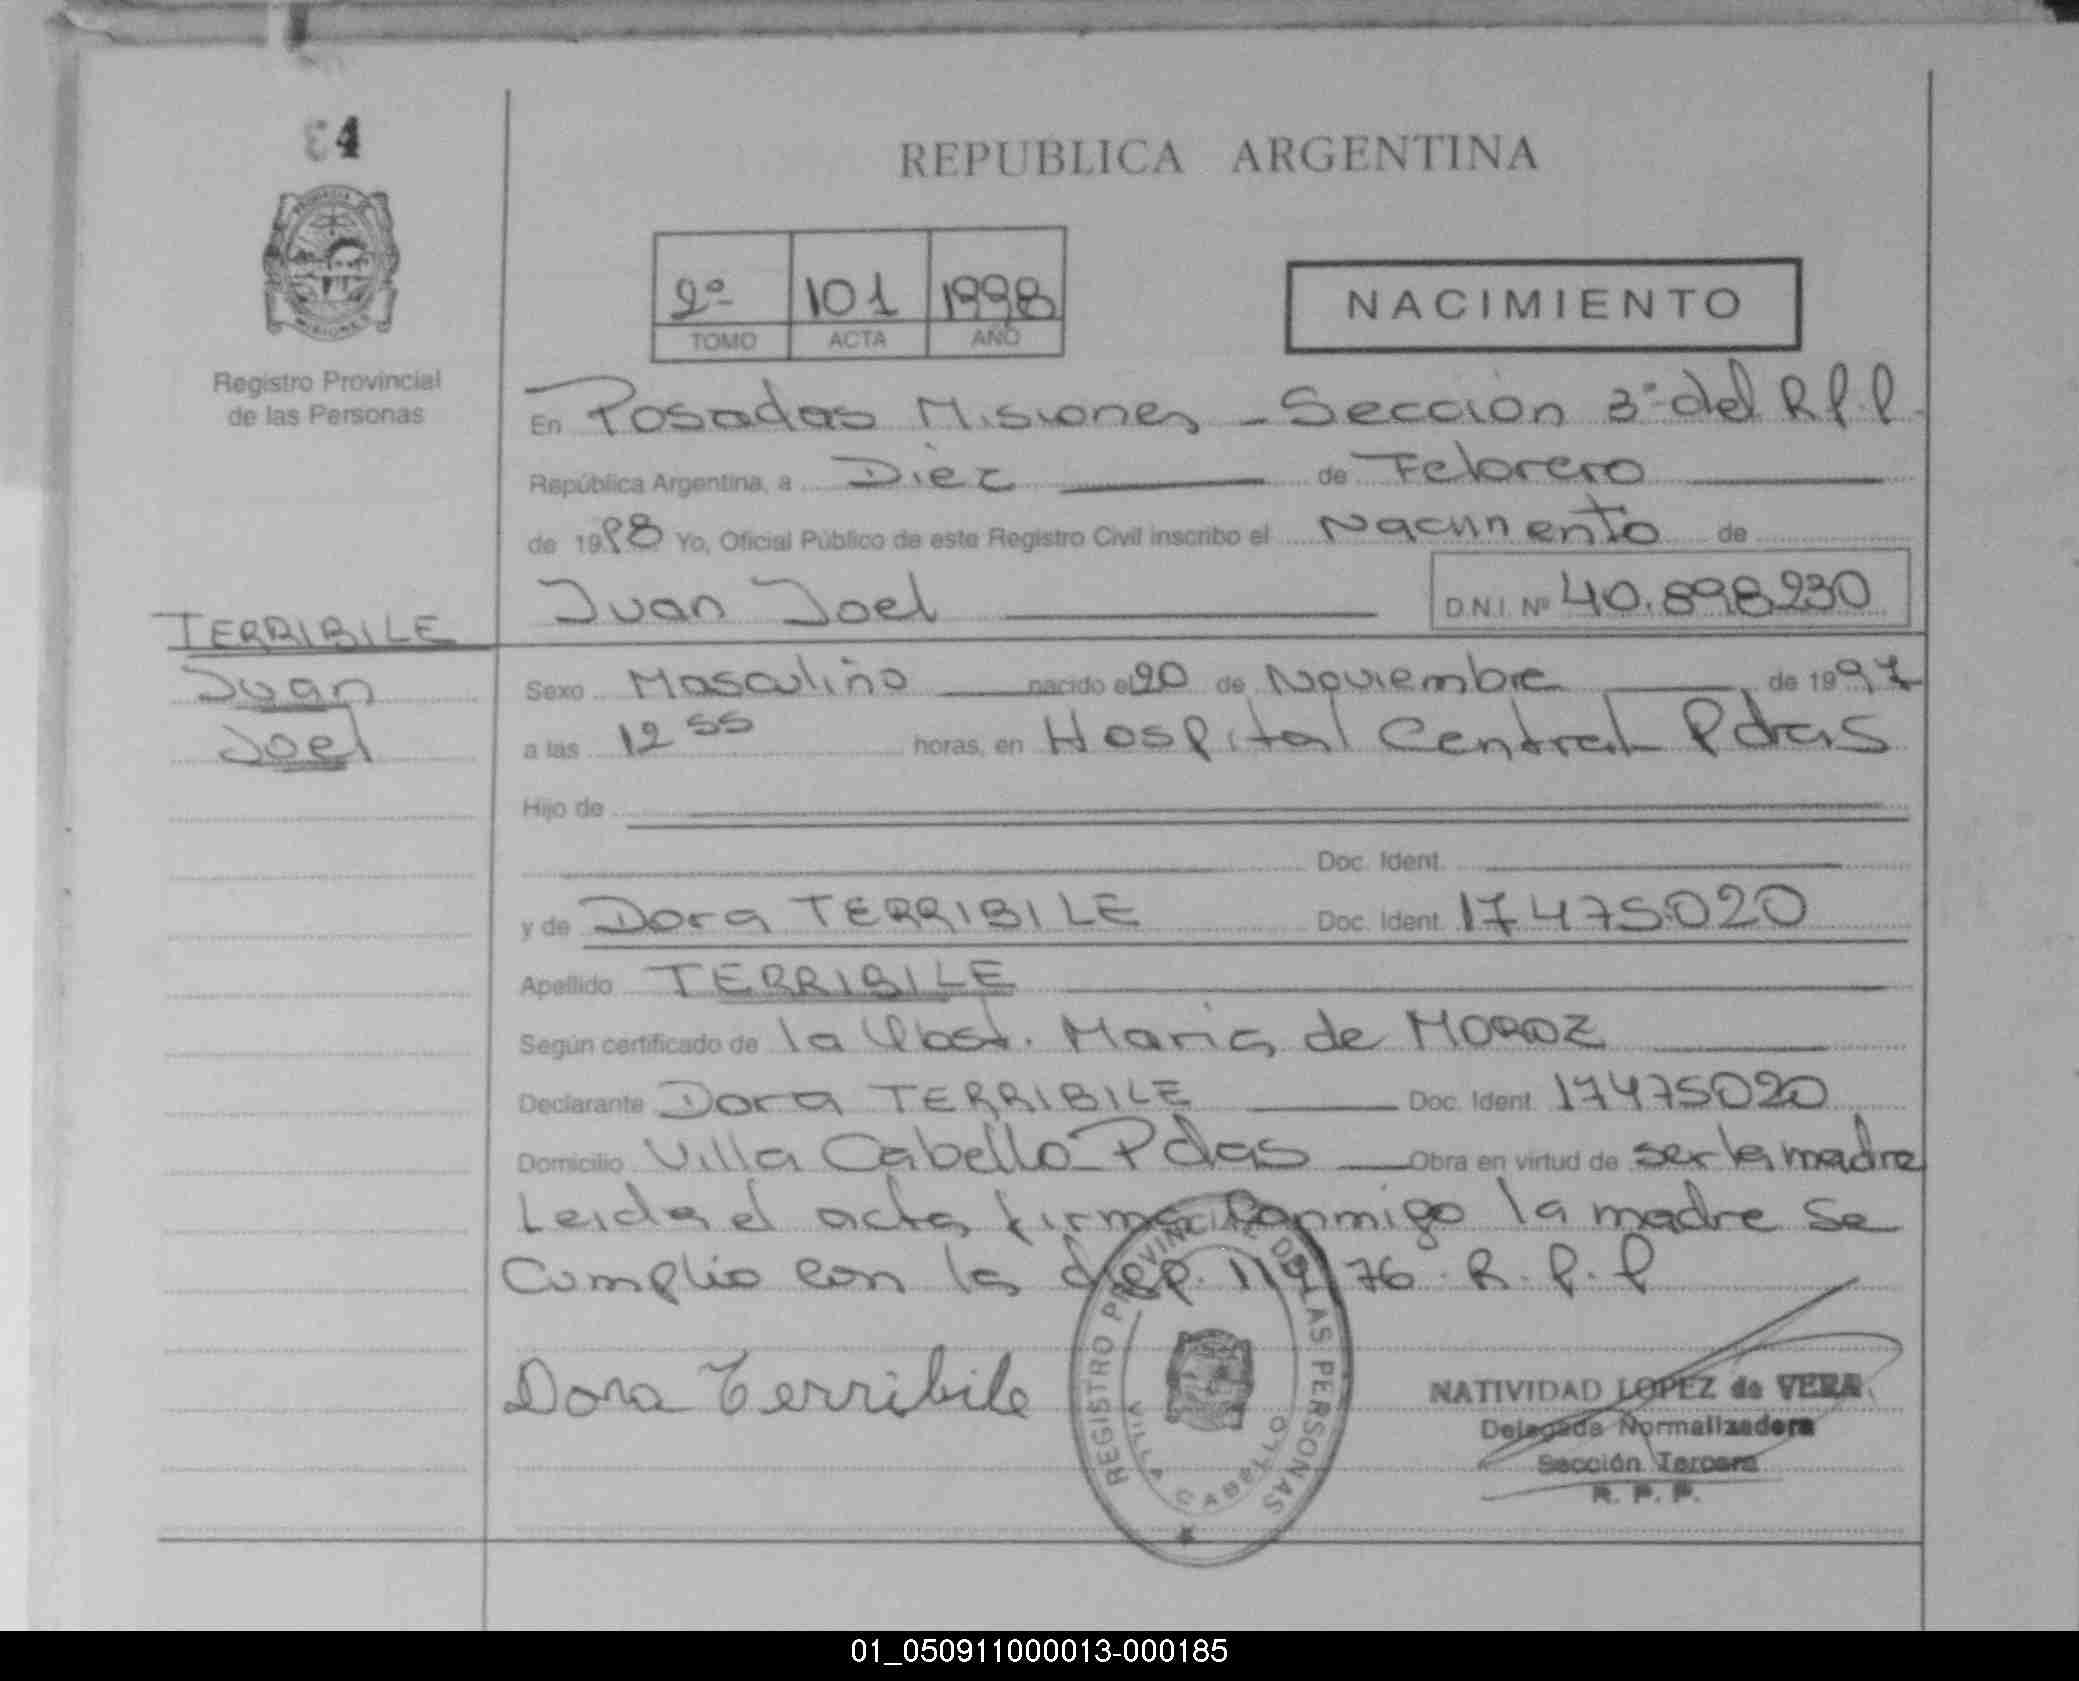 4
REPUBLICA ARGENTINA
2º 101 1998
TOMO ACTA AÑO
NACIMIENTO
MISIONES
Registro Provincial
de las Personas
En Posadas Misiones - Sección 3º del R.P.P.
República Argentina, a Diez de Febrero
de 1998 Yo, Oficial Público de este Registro Civil inscribo el Nacimiento de
Juan Joel D.N.I. Nº 40.898.230
TERRIBILE
Juan
Joel
Sexo Masculino nacido el 20 de Noviembre de 1997
a las 12 55 horas, en Hospital Central Pdas
Hijo de
Doc. Ident.
y de Dora TERRIBILE Doc. Ident. 17475020
Apellido TERRIBILE
Según certificado de la Obst. Maria de MOROZ
Declarante Dora TERRIBILE Doc. Ident. 17475020
Domicilio Villa Cabello Pdas Obra en virtud de ser la madre
Leida el acta firma Conmigo la madre se
Cumplio con la disp. /76 R.P.P
Dora Terribile
REGISTRO PROVINCIAL DE LAS PERSONAS
VILLA CABELLO
NATIVIDAD LOPEZ de VERA
Delegada Normalizadora
Sección Tercera
R. P. P.
01_050911000013-000185